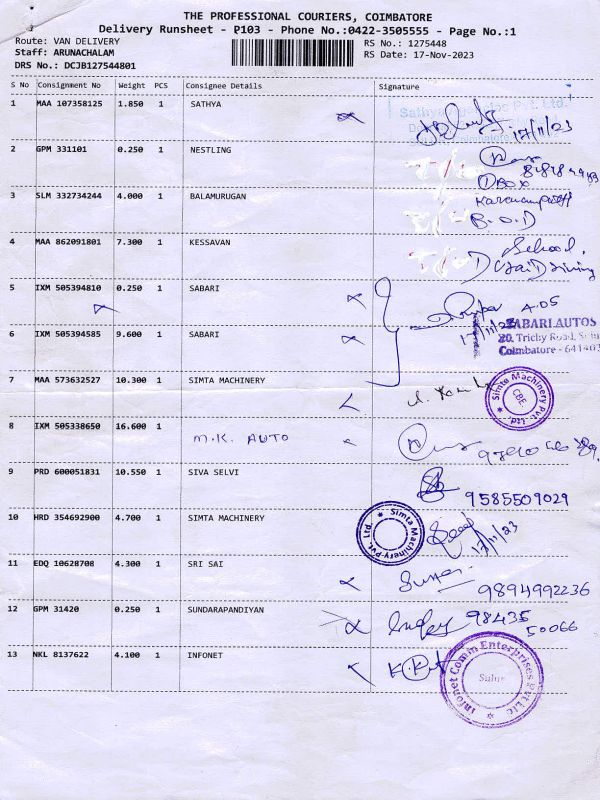 THE PROFESSIONAL COURIERS, COIMBATORE
Delivery Runsheet - P103 - Phone No.:0422-3505555 - Page No.:1
Route: VAN DELIVERY
RS No.: 1275448
Staff: ARUNACHALAM
RS Date: 17-Nov-2023
DRS No.: DCJB127544801
S No Consignment No Weight PCS Consignee Details Signature
1 MAA 107358125 1.850 1 SATHYA
17/11/23
2 GPM 331101 0.250 1 NESTLING
BOX
3 SLM 332734244 4.000 1 BALAMURUGAN
B.O.D
4 MAA 862091801 7.300 1 KESSAVAN
School,
5 IXM 505394810 0.250 1 SABARI
SABARI AUTOS
20, Trichy Road,
Coimbatore - 641402
6 IXM 505394585 9.600 1 SABARI
7 MAA 573632527 10.300 1 SIMTA MACHINERY
Simta Machinery Pvt. Ltd.
CBE
8 IXM 505338650 16.600 1 M.K. AUTO
9 PRD 600051831 10.550 1 SIVA SELVI
9585509029
10 HRD 354692900 4.700 1 SIMTA MACHINERY
Simta Machinery Pvt. Ltd.
17/11/23
11 EDQ 10628708 4.300 1 SRI SAI
9894992236
12 GPM 31420 0.250 1 SUNDARAPANDIYAN
98435
50066
13 NKL 8137622 4.100 1 INFONET
Infonet Comm Enterprises Pvt Ltd
Sulur